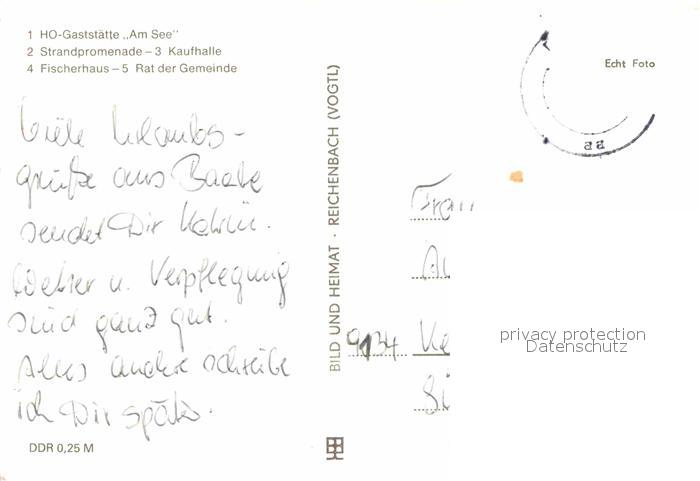 1 HO-Gaststätte „Am See"
2 Strandpromenade – 3 Kaufhalle
4 Fischerhaus – 5 Rat der Gemeinde
Viele Urlaubs-
grüße aus Baabe
sendet Dir Katrin.
Wetter u. Verpflegung
sind ganz gut.
Alles andere schreibe
ich Dir später.
DDR 0,25 M
BILD UND HEIMAT · REICHENBACH (VOGTL)
Echt Foto
aa
Frau
9134
privacy protection
Datenschutz